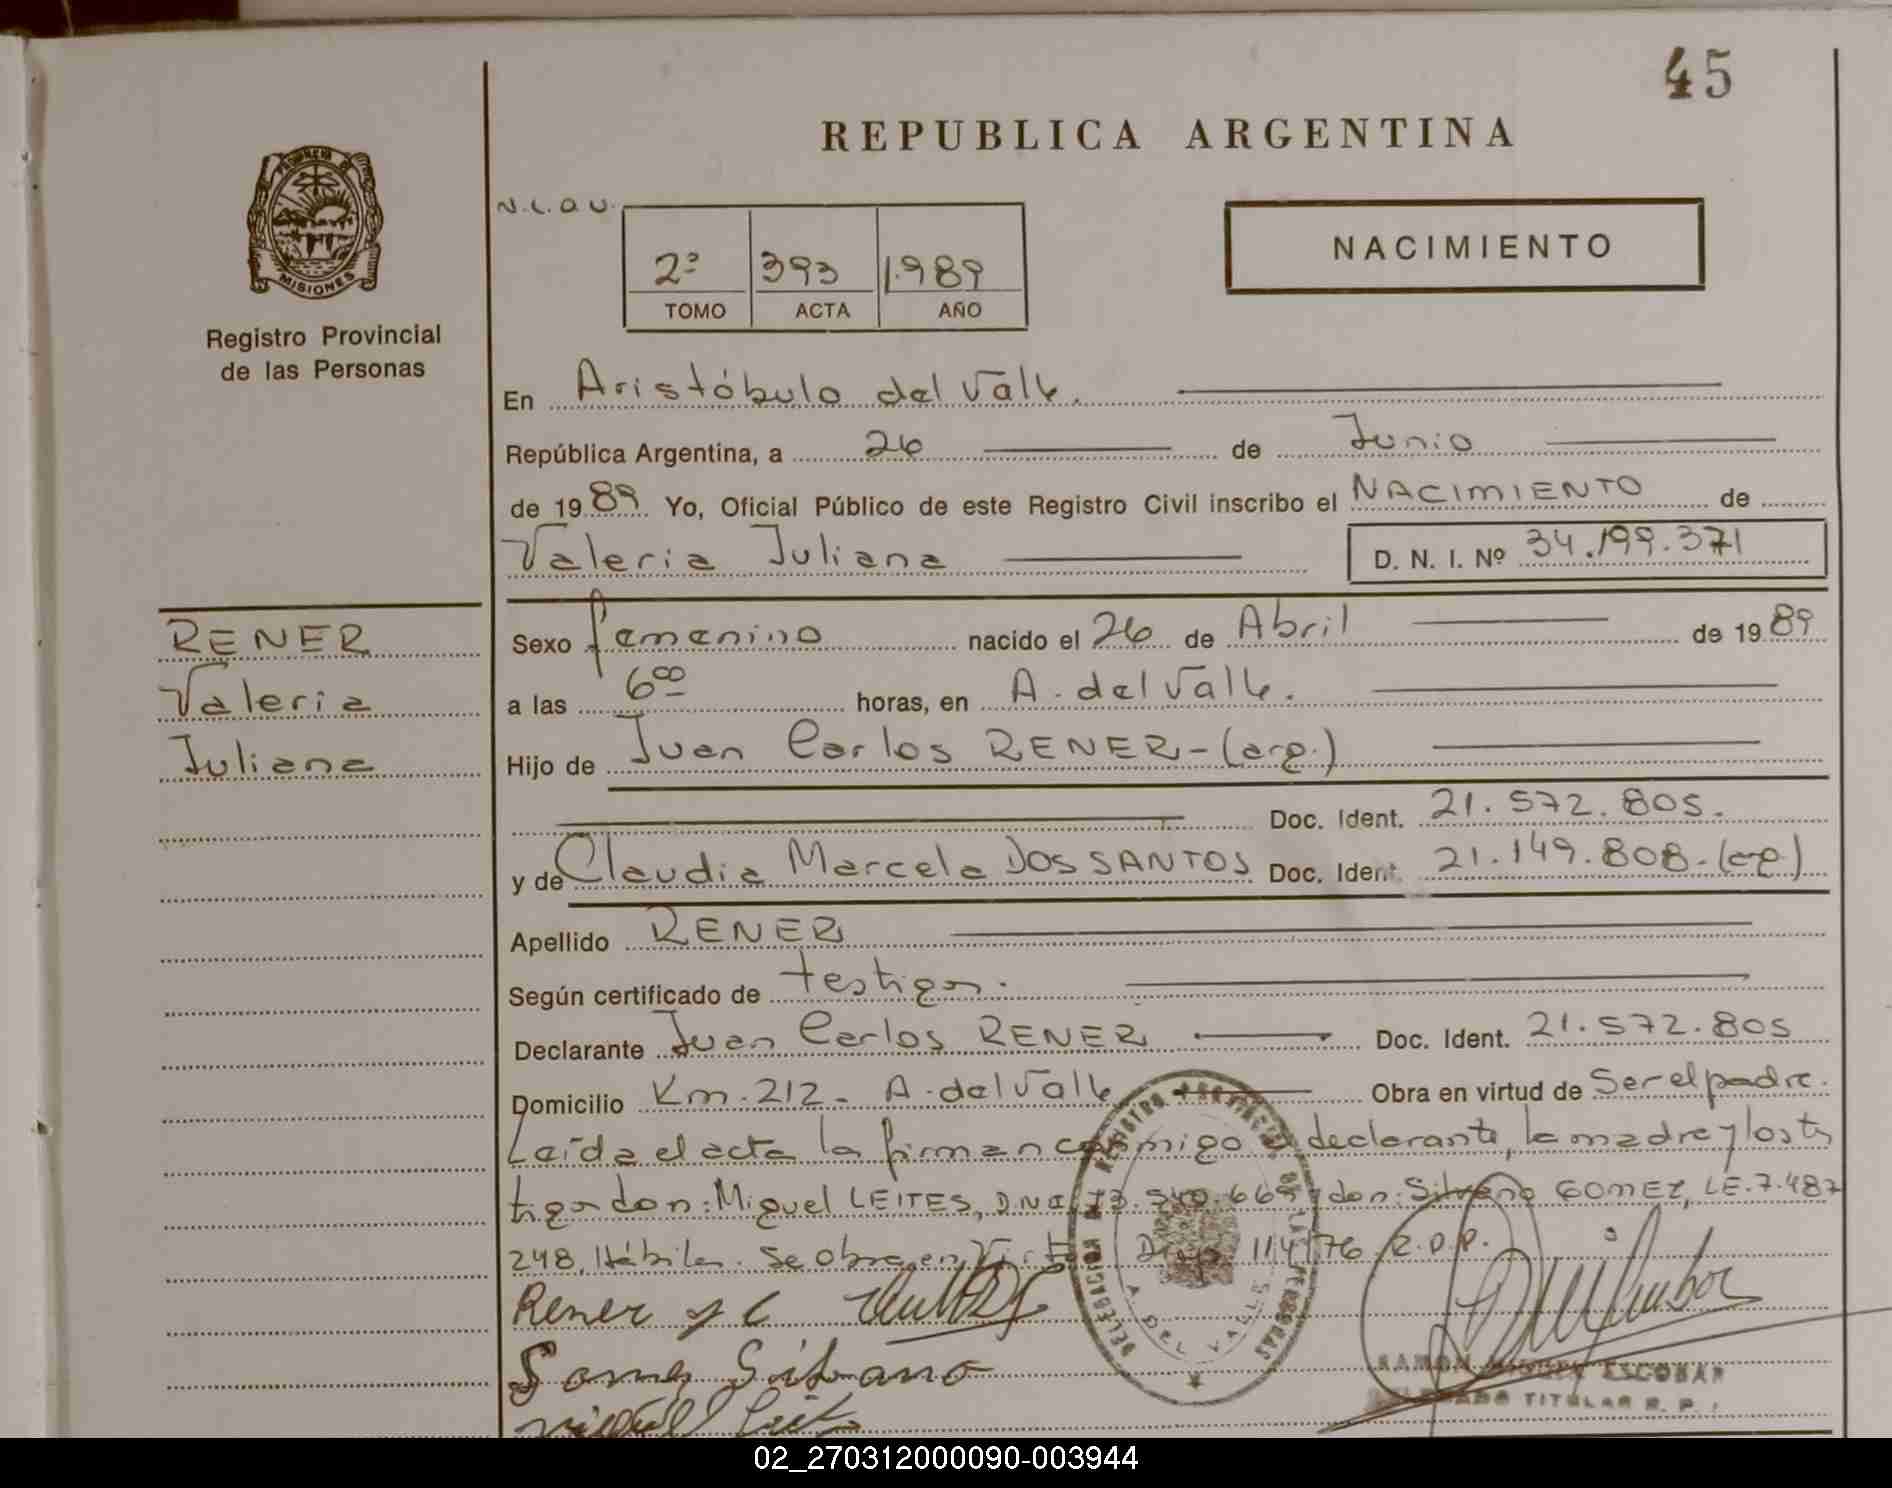 45
REPUBLICA ARGENTINA
PROVINCIA DE
MISIONES
Registro Provincial
de las Personas
N.L.O.U.
2º 393 1.989
TOMO ACTA AÑO
NACIMIENTO
En Aristóbulo del Valle.
República Argentina, a 26 de Junio
de 1989 Yo, Oficial Público de este Registro Civil inscribo el NACIMIENTO de
Valeria Juliana D. N. I. Nº 34.199.371
RENER
Valeria
Juliana
Sexo femenino nacido el 26 de Abril de 1989
a las 6⁰⁰ horas, en A. del Valle.
Hijo de Juan Carlos RENER-(arg.)
Doc. Ident. 21.572.805.
y de Claudia Marcela DOS SANTOS Doc. Ident. 21.149.808.-(arg.)
Apellido RENER
Según certificado de testigos.
Declarante Juan Carlos RENER Doc. Ident. 21.572.805
Domicilio Km. 212 - A. del Valle Obra en virtud de Ser el padre.
Leída el acta la firman conmigo el declarante, la madre y los tes
tigos don: Miguel LEITES, DNI. y don: Silvano GOMEZ, LE. 7.487
248, Hábiles. Se obra en Disp. 114/76 R.P.P.
Rener J C
Gomes Silvano
Miguel Leites
DELEGACION DEL REGISTRO PROVINCIAL DE LAS PERSONAS
A. DEL VALLE
RAMON ESCOBAR
DELEGADO TITULAR R. P.
02_270312000090-003944